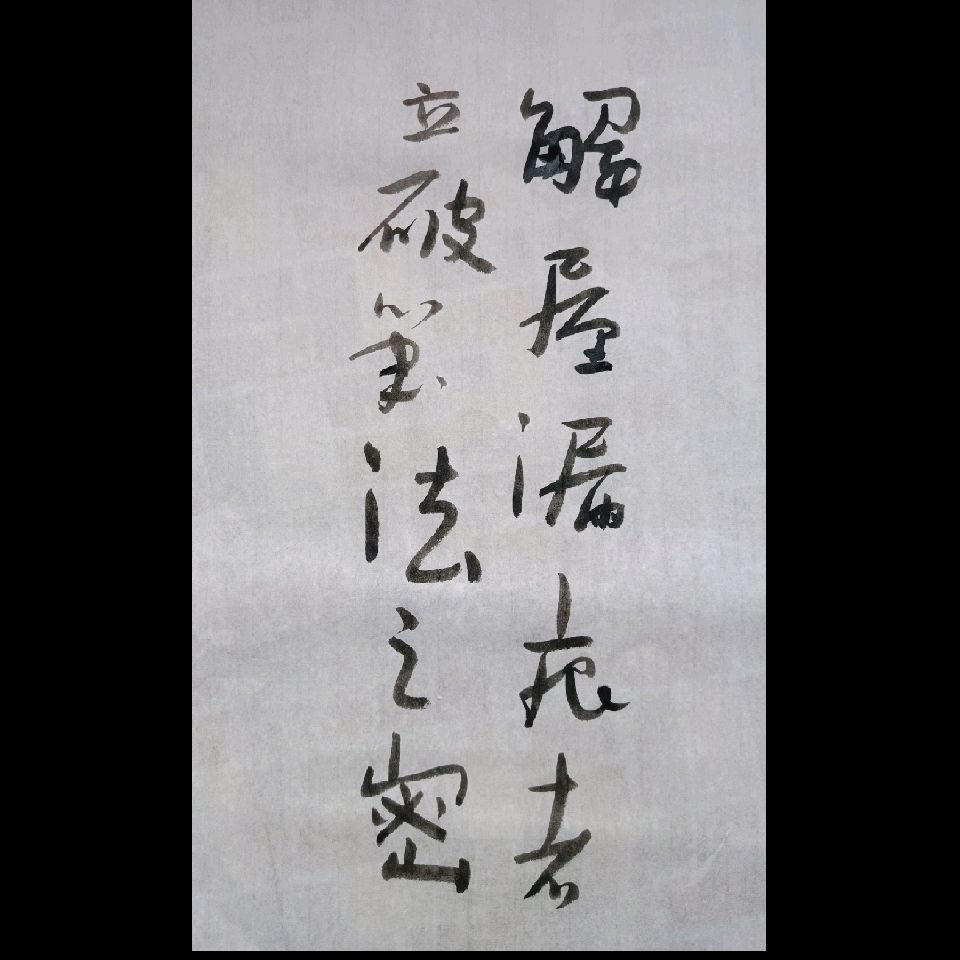 解屋漏痕者
立破笔法之密